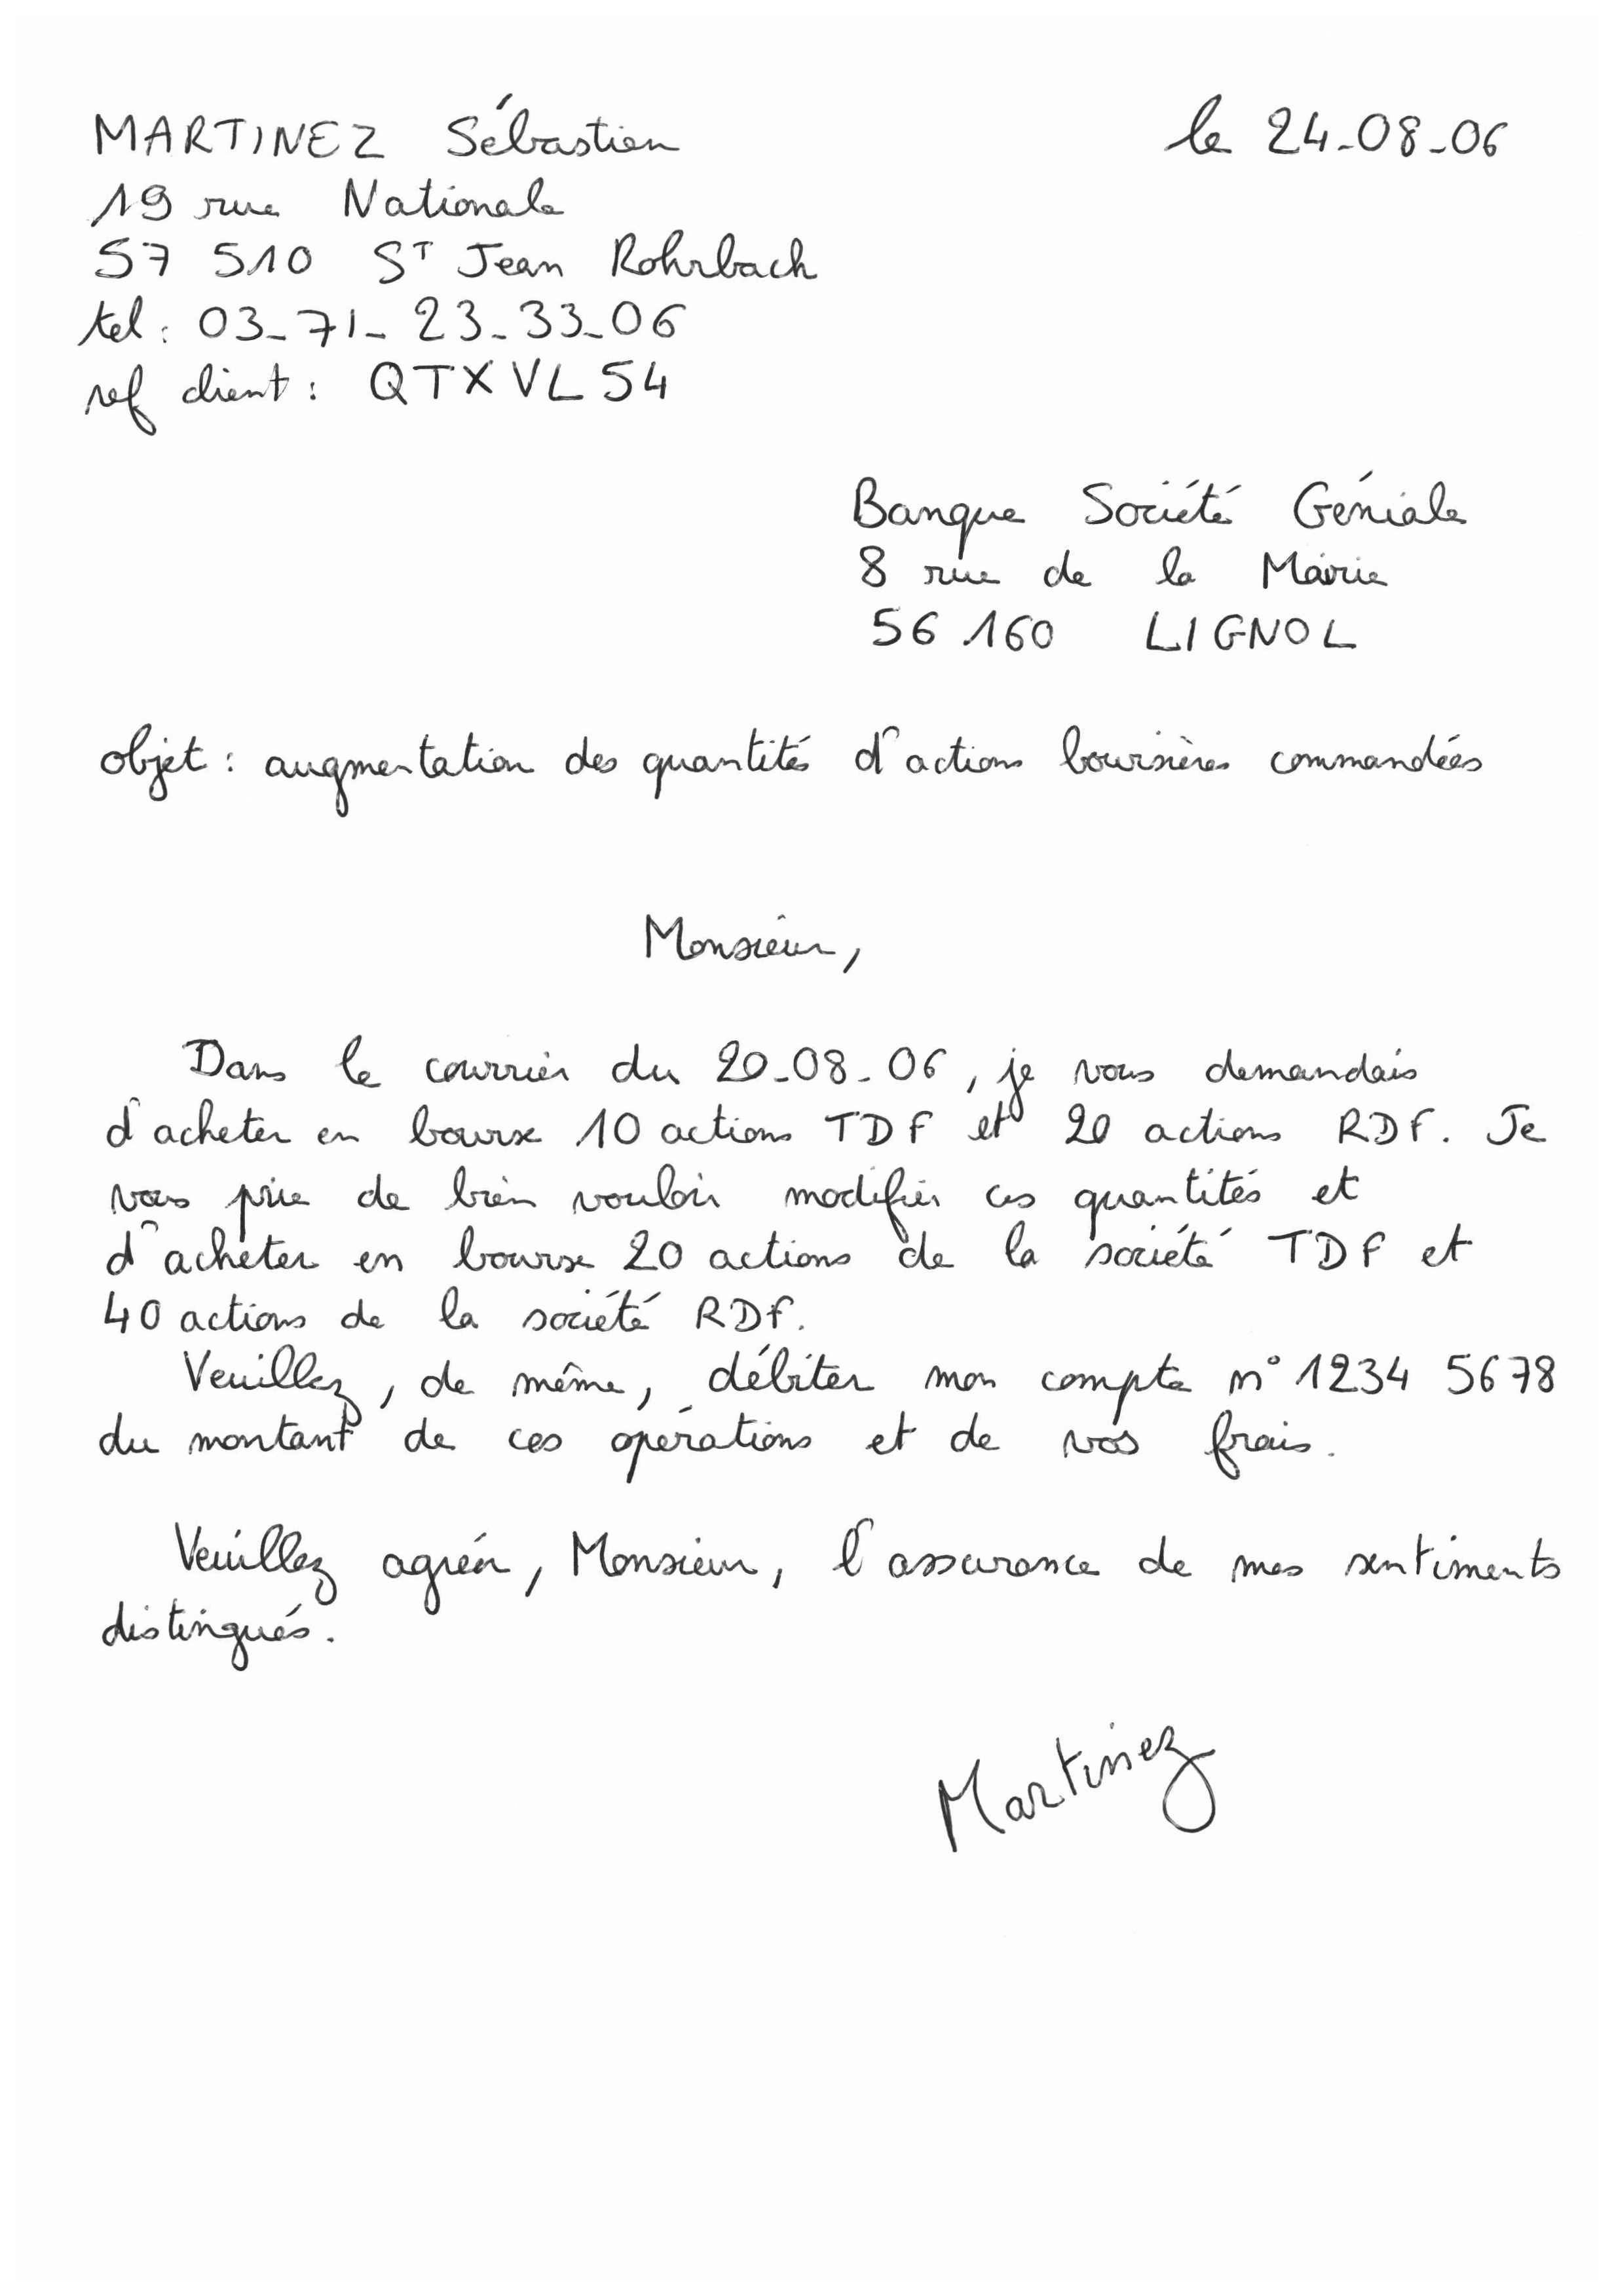 MARTINEZ Sébastien
le 24-08-06
19 rue Nationale
57 510 ST Jean Rohrbach
tel : 03-71-23-33-06
ref client : QTXVL54
Banque Société Géniale
8 rue de la Mairie
56 160 LIGNOL
objet : augmentation des quantités d'actions boursières commandées
Monsieur,
Dans le courrier du 20-08-06, je vous demandais
d'acheter en bourse 10 actions TDF et 20 actions RDF. Je
vous prie de bien vouloir modifier ces quantités et
d'acheter en bourse 20 actions de la société TDF et
40 actions de la société RDF.
Veuillez, de même, débiter mon compte n° 1234 5678
du montant de ces opérations et de vos frais.
Veuillez agréer, Monsieur, l'assurance de mes sentiments
distingués.
Martinez